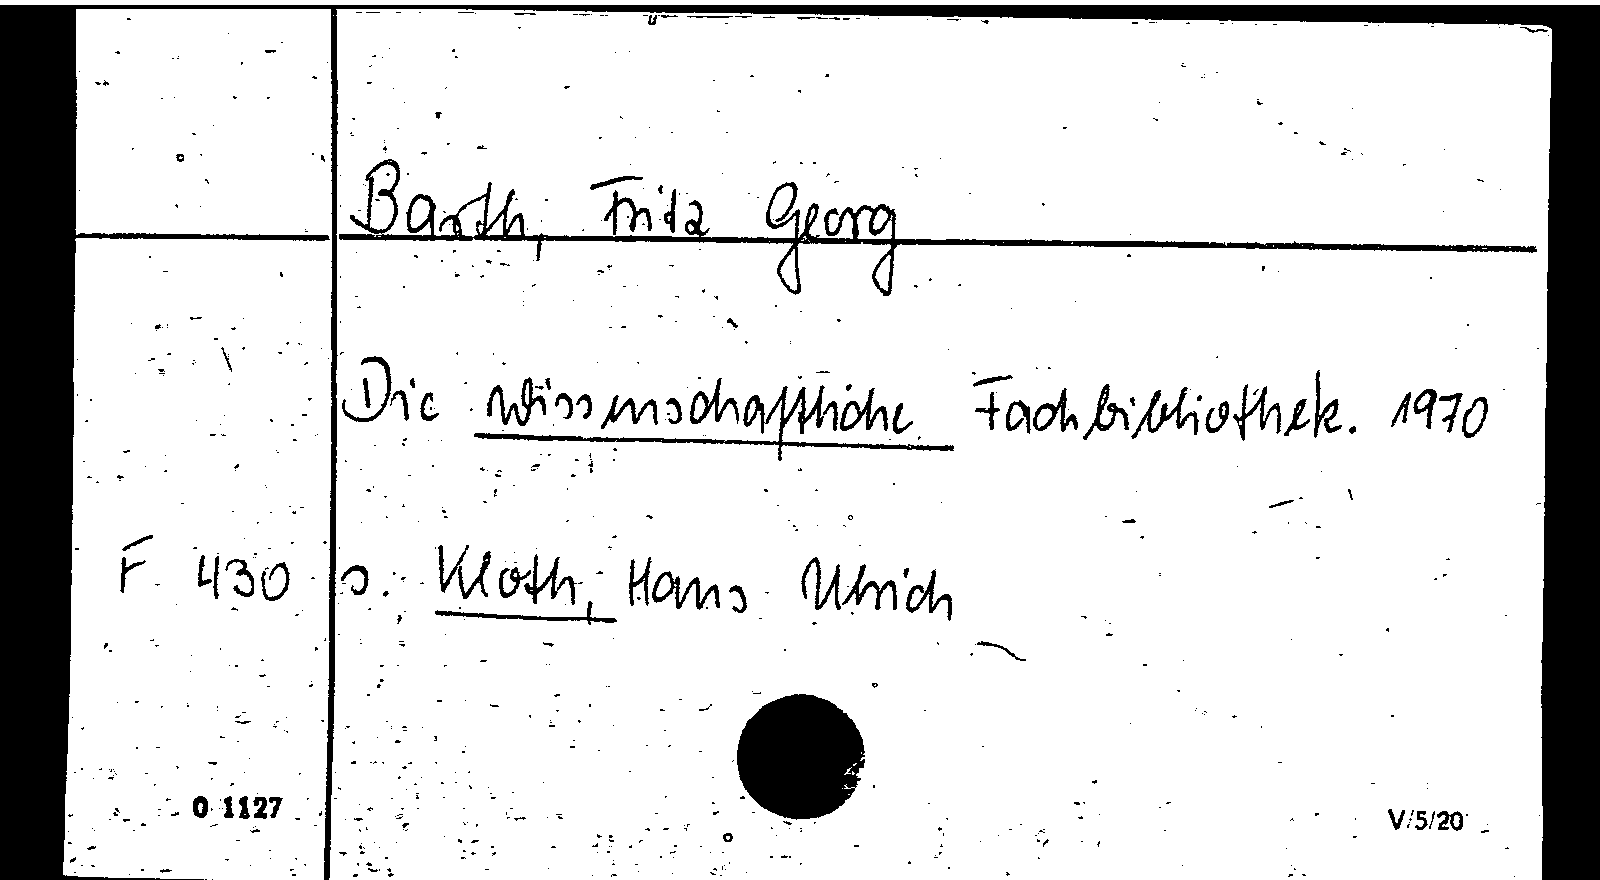 Barth, Fritz Georg
Die wissenschaftliche Fachbibliothek. 1970
F 430 s. Kloth, Hans Ulrich
O 1127
V/5/20